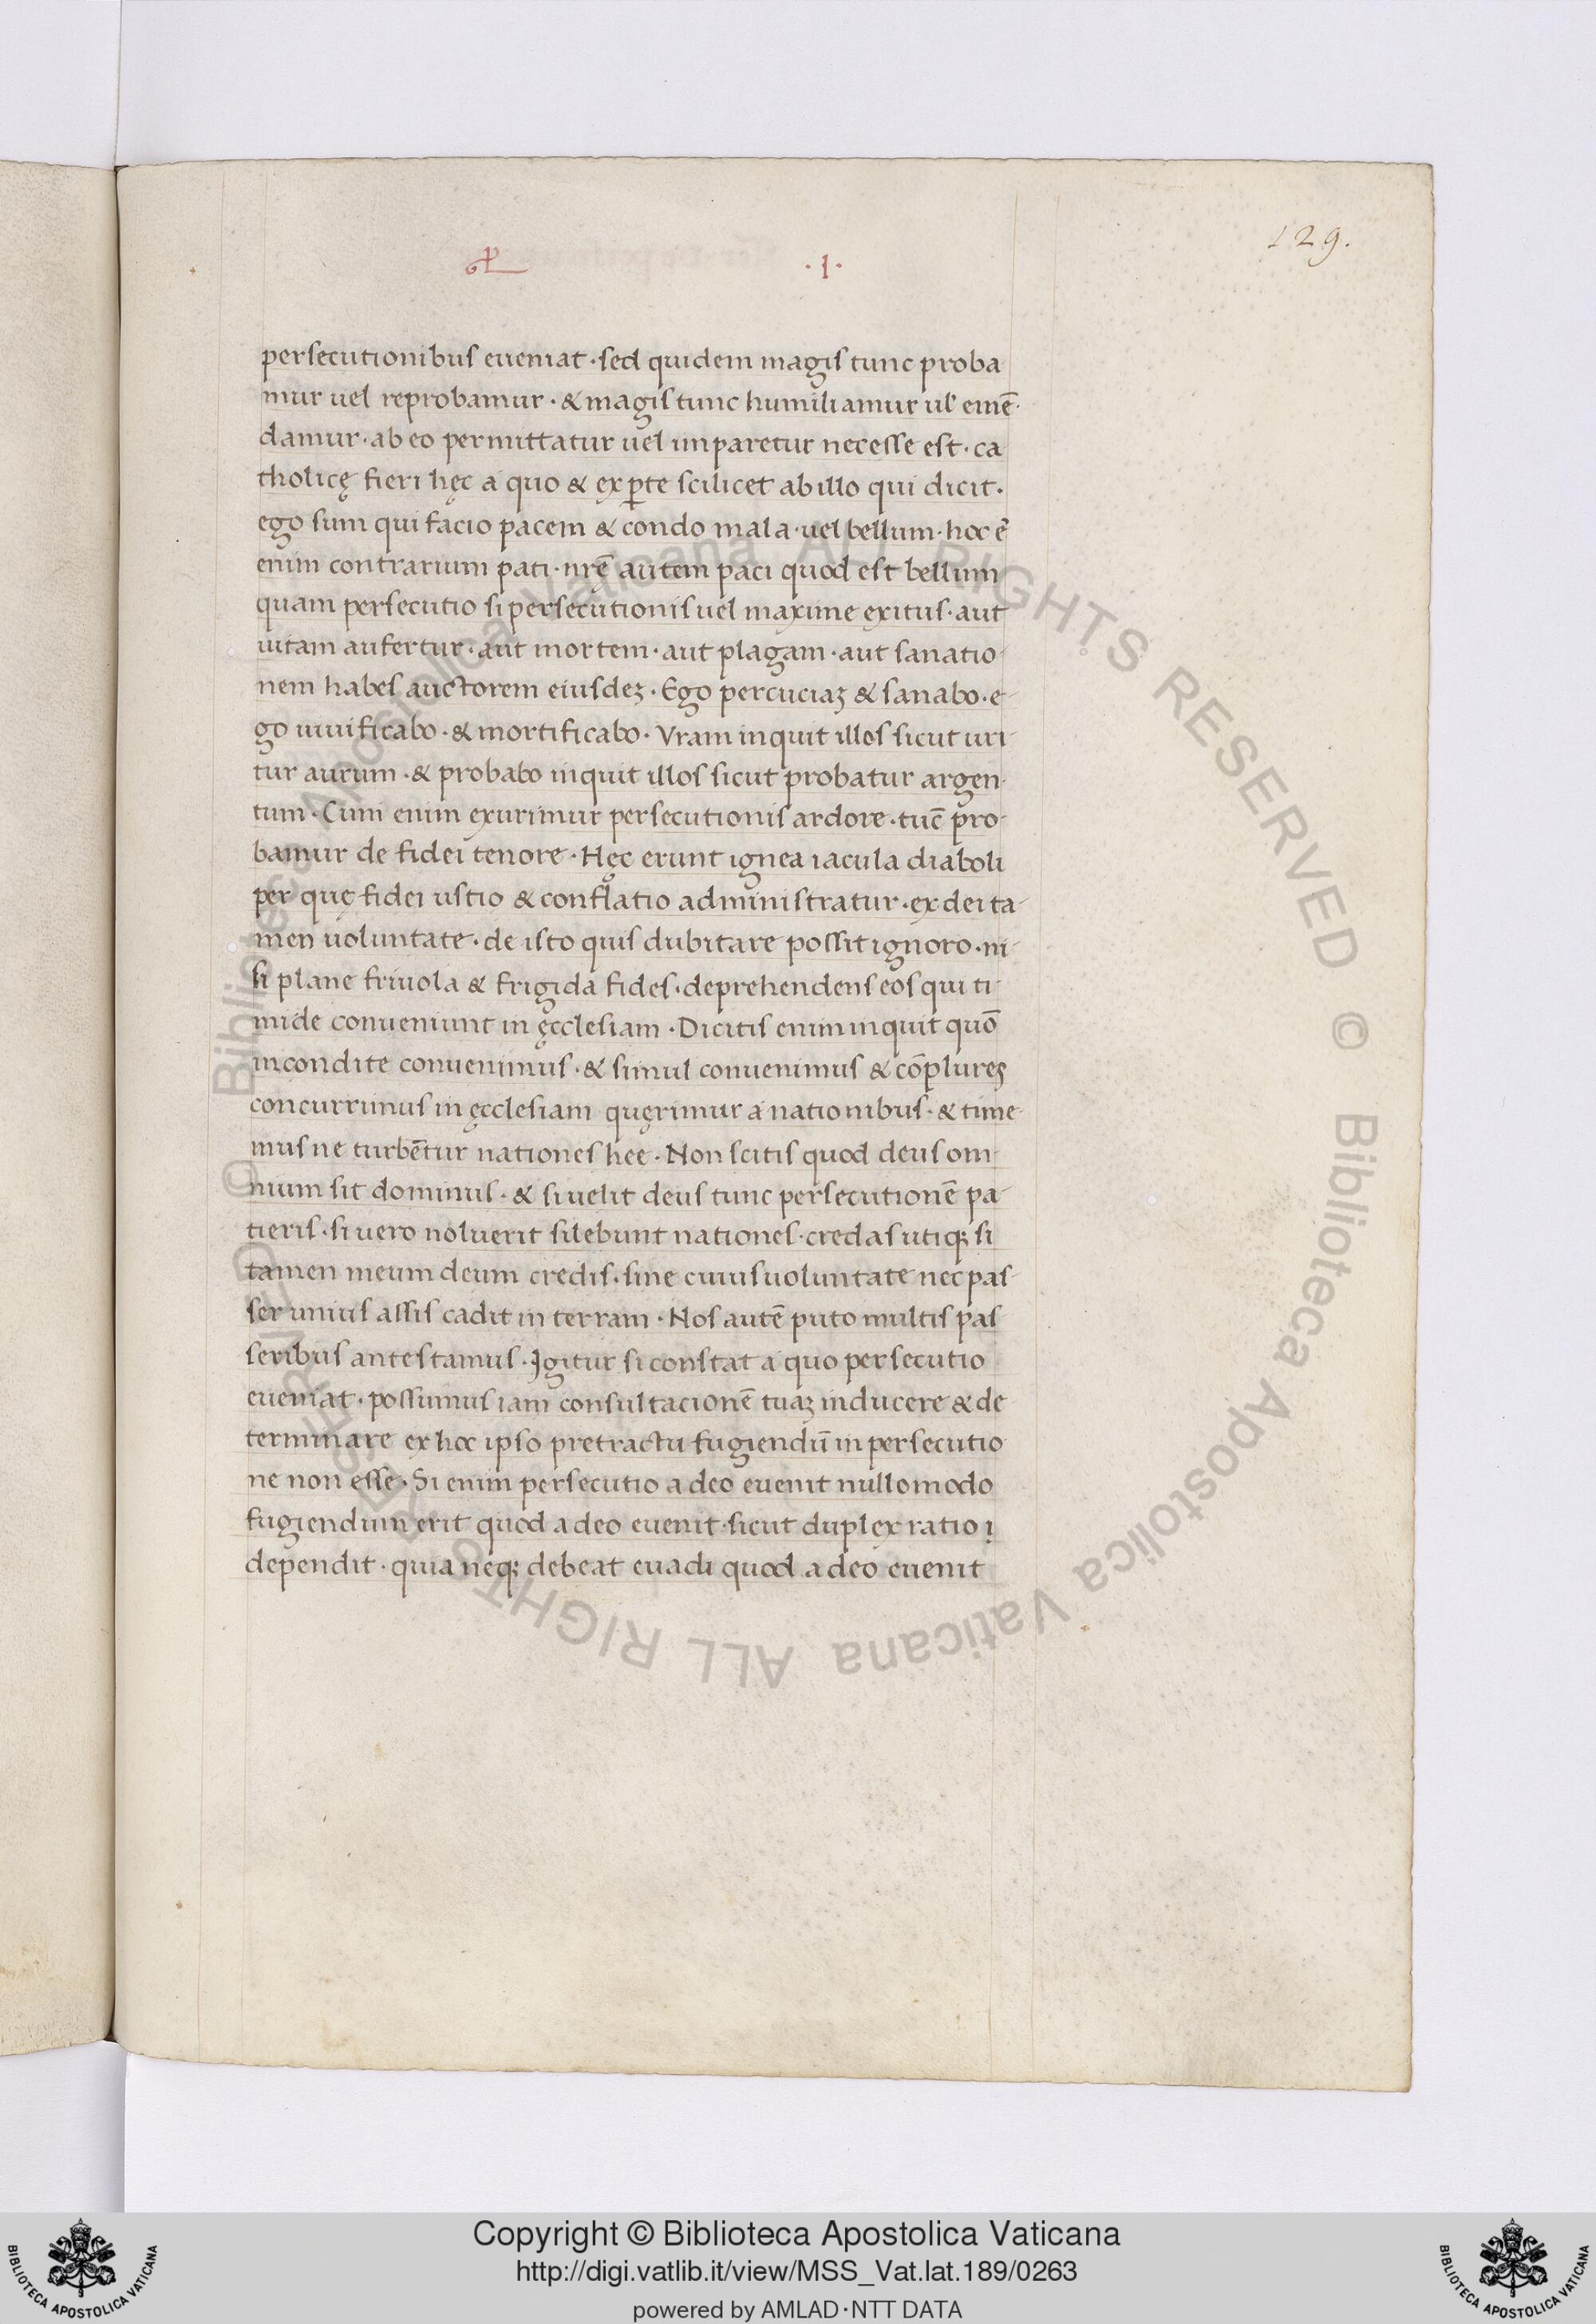 129.
·I·
persecutionibus eueniat · sed quidem magis tunc proba
mur uel reprobamur · & magis tunc humiliamur ul' emē-
damur · ab eo permittatur uel imparetur necesse est · ca
tholicę fieri hęc a quo & ex ꝑte scilicet ab illo qui dicit ·
ego sum qui facio pacem & condo mala · uel bellum · hoc ē
enim contrarium pati · nr̄e autem paci quod est bellum
quam persecutio si persecutionis uel maxime exitus · aut
uitam aufertur · aut mortem · aut plagam · aut sanatio-
nem habes auctorem eiusdeꝫ · Ego percuciaꝫ & sanabo · e-
go uiuificabo · & mortificabo · Vram inquit illos sicut uri
tur aurum · & probabo inquit illos sicut probatur argen-
tum · Cum enim exurimur persecutionis ardore · tūc pro-
bamur de fidei tenore · Hęc erunt ignea iacula diaboli
per quę fidei ustio & conflatio administratur · ex dei ta-
men uoluntate · de isto quis dubitare possit ignoro · ni-
si plane friuola & frigida fides · deprehendens eos qui ti-
mide conueniunt in ęcclesiam · Dicitis enim inquit quō
incondite conuenimus · & simul conuenimus & cōplures
concurrimus in ęcclesiam quęrimur a nationibus · & time-
mus ne turbētur nationes hee · Non scitis quod deus om-
nium sit dominus · & si uelit deus tunc persecutionē pa-
tieris · si uero noluerit silebunt nationes · credas utiqꝫ si
tamen meum deum credis · sine cuius uoluntate nec pas-
ser unius assis cadit in terram · Nos autē puto multis pas
seribus antestamus · Igitur si constat a quo persecutio
eueniat · possumus iam consultacionē tuaꝫ inducere & de
terminare ex hoc ipso pretractu fugiendū in persecutio
ne non esse · Si enim persecutio a deo euenit nullomodo
fugiendum erit quod a deo euenit · sicut duplex ratio i
dependit · quia neqꝫ debeat euadi quod a deo euenit
Copyright © Biblioteca Apostolica Vaticana
http://digi.vatlib.it/view/MSS_Vat.lat.189/0263
powered by AMLAD·NTT DATA